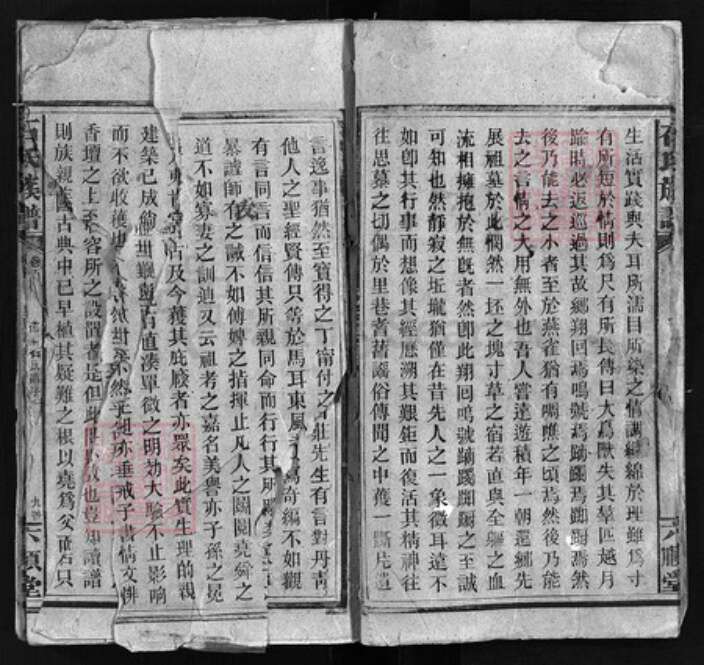 生活實踐與夫耳所濡目所染之情講纏綿於理雖爲寸
有所短於情則爲尺有所長傳曰大爲獸失其羣匹越月
踰時必返巡過其故鄉翔回焉鳴號焉蹢躅焉踟躕焉然
後乃能去之小者至於燕雀猶有啁噍之頃焉然後乃能
去之言情之大用無外也吾人嘗遠遊積年一朝還鄉先
展祖墓於此憫然一抔之塊寸草之宿若直與全軀之血
流相擁抱於無旣者然卽此翔回鳴號蹢躅踟躕之至誠
可知也然靜寂之坵壠猶僅在昔先人之一象徵耳達不
如卽其行事而想像其經歷溯其艱鉅而復活其精神往
往思慕之切偶於里巷耆舊謠俗傳聞之中獲一鱗片遺
言逸事猶然至寶得之丁甯付之莊先生有言對丹靑
他人之聖經賢傳只等於馬耳東風萬奇編不如觀
有言同言而信信其所親同命而行行其所
暴謔師友之誡不如傅婢之指揮止凡人之鬭鬩堯舜之
道不如寡妻之訓迪又云祖考之嘉名美譽亦子孫之冕
古及今獲其庇廕者亦眾矣此實生理的親
建築已成俗世艱與古直湊單微之明効大驗不止影響
而不欲收穫 不然 垂戒子書情文悱
香壇之上至容所之設置者是但此 也豈知讀譜
則族親舊古典中已早植其疑難之根以堯爲父而舌只
石氏族譜
卷
六順堂
石氏族譜
六順堂